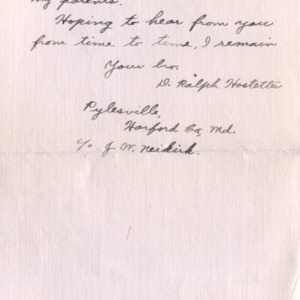 my parents.
Hoping to hear from you
from time to time, I remain
Your bro.
D. Ralph Hostetter
Pylesville,
Harford Co, Md.
c/o J. W. Neikirk.